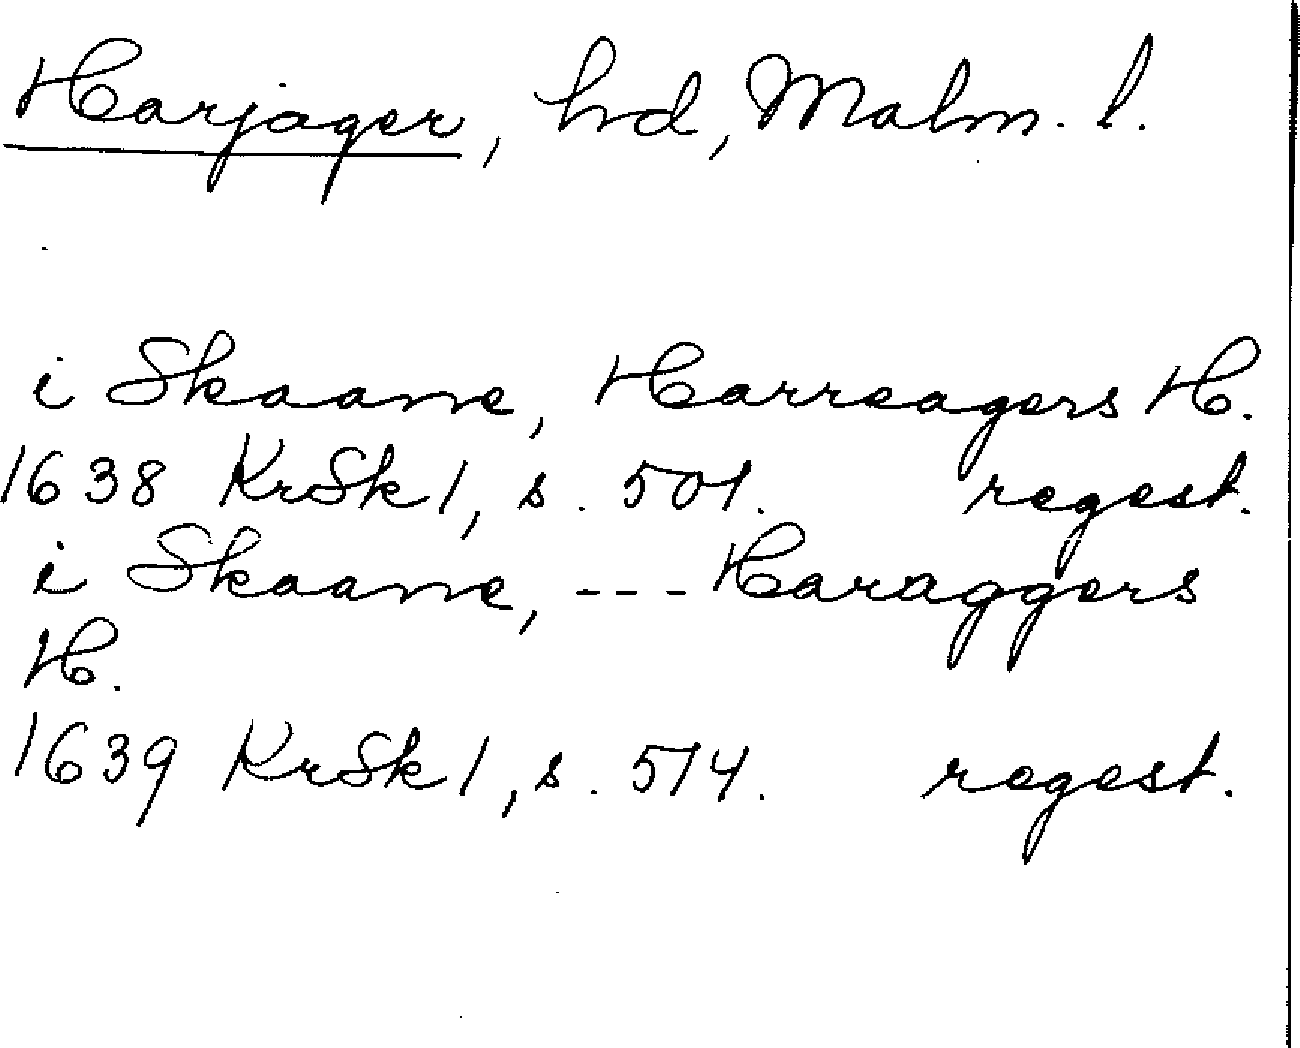 Harjager, hd, Malm. l.
i Skaane, Harreagers H.
1638 KrSk 1, s. 501. regest.
i Skaane, --- Haraggers
H.
1639 KrSk 1, s. 514. regest.